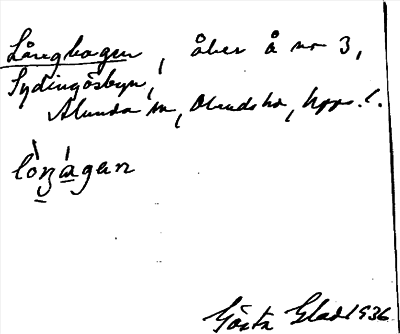 Långhagen, åker å nr 3,
Sydingösbyn,
Alunda sn, Olands hd, Upps. l.
lòŋágan
Gösta Glad 1936